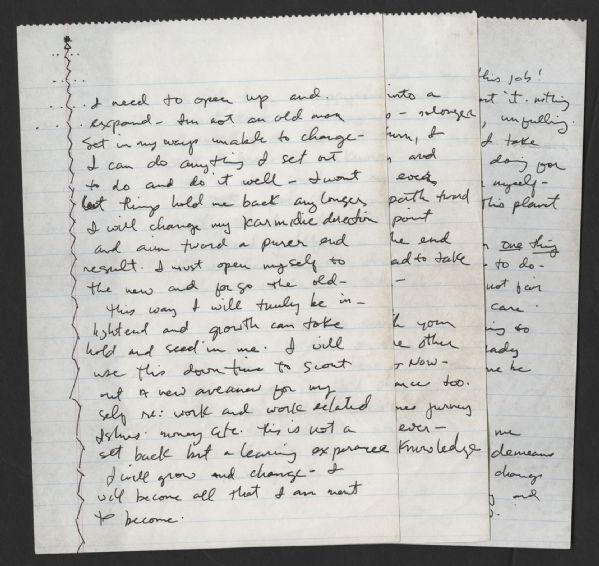 I need to open up and
expand - Im not an old man
set in my ways unable to change -
I can do anything I set out
to do and do it well - I wont
let things hold me back any longer
I will change my Karmidic direction
and aim tward a purer end
result. I must open myself to
the new and forgo the old -
this way I will truly be in -
lightend and growth can take
hold and seed in me. I will
use this down-time to scout
out A new aveanew for my
self re: work and work related
Ishus. money etc. this is not a
set back but a learing experance
I will grow and change - I
will become all that I am ment
to become.
into a
- no longer
turn, I
and
even
path tward
point
the end
ad to take
-
your
other
Now -
too.
jurney
ever -
Knowledge
this job!
it. nothing
, unfulling.
I take
doing for
myself -
this planet
one thing
- to do -
not far
care.
to
ady
me be
me
demeans
change
and